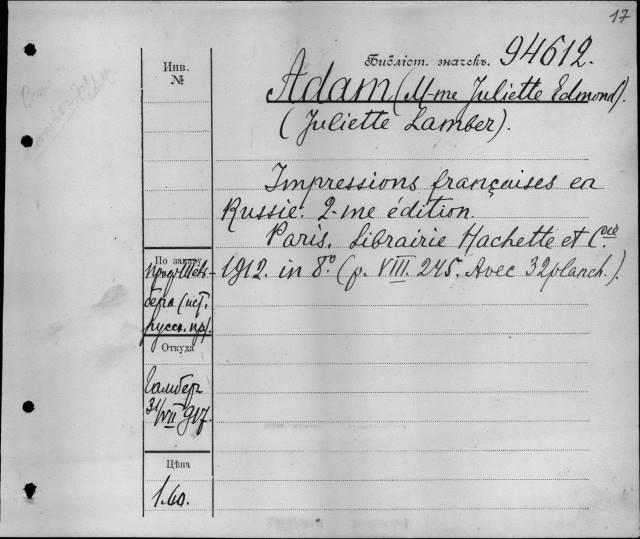 17
Инв.
№
Библіот. значекъ. 94612.
Adam (M-me Juliette Edmond).
(Juliette Lamber).
Impressions françaises en
Russie. 2-me édition.
Paris. Librairie Hachette et Cie.
1912. in 8.° (p. VIII. 245. Avec 32 planch.).
По заказу
проф. Шек-
бега (ист.
русск. пр).
Откуда
Гамбер
31/VII 917.
Цѣна
1.60.